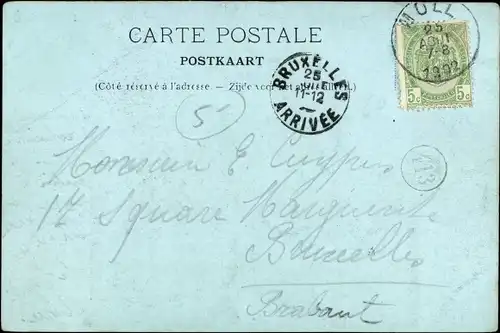 CARTE POSTALE
POSTKAART
(Côté réservé à l'adresse. - Zijde voor het adres alleen.)
MOLL
25
AOUT
7-8
1902
5c 5c
BRUXELLES
25
11-12
ARRIVÉE
5
Monsieur E. Cuypers
17 Square Marguerite
Bruxelles
Brabant